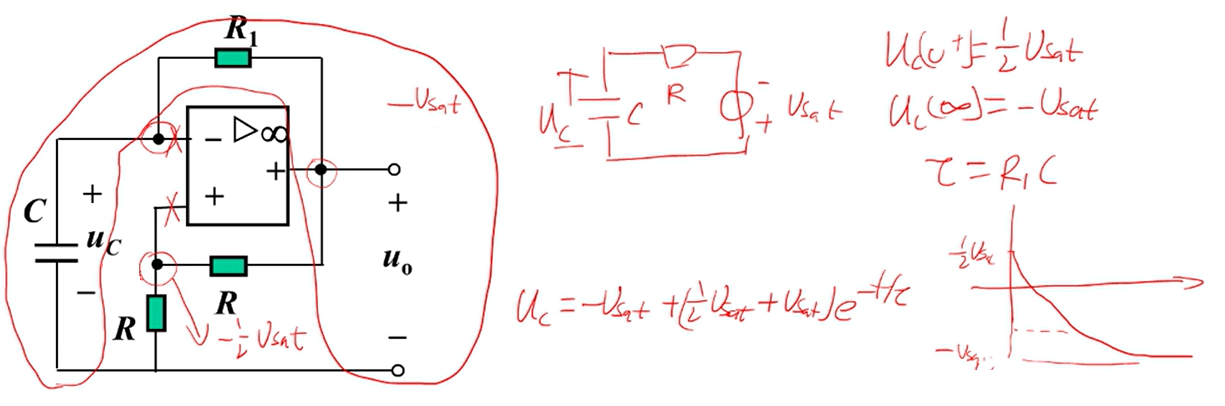 R₁
− ▷∞
+
+
C
+
u_C
−
R
R
+
u_o
−
−U_sat
−½ U_sat
U_C
C
R
−
+
U_sat
U_C(0⁺)=½ U_sat
U_C(∞)=−U_sat
τ = R₁C
U_C = −U_sat + (½ U_sat + U_sat) e^{−t/τ}
−U_sat